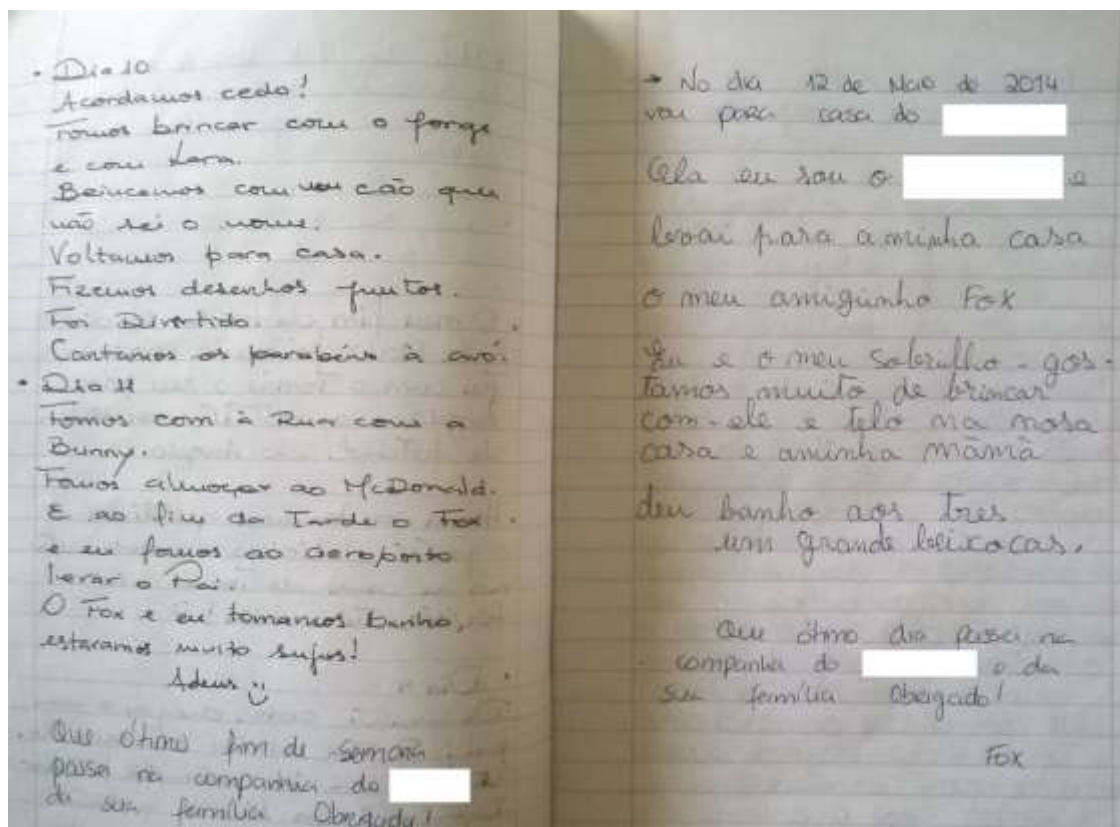 • Dia 10
Acordamos cedo!
Fomos brincar com o Jorge
e com Lara.
Brincamos com um cão que
não sei o nome.
Voltamos para casa.
Fizemos desenhos juntos.
Foi Divertido.
Cantamos os parabéns à avó.
• Dia 11
Fomos com à Rua com a
Bunny.
Fomos almoçar ao McDonald.
E ao fim da Tarde o Fox
e eu fomos ao aeroporto
levar o Pai.
O Fox e eu tomamos banho,
estavamos muito sujos!
Adeus
Que ótimo fim de semana
passei na companhia do
da sua família Obrigada!
→ No dia 12 de Maio de 2014
vou para casa do
Ola eu sou o e
levai para aminha casa
o meu amiguinho Fox
Eu e o meu sobrilho - gos-
tamos muito de brincar
com-ele e telo na nosa
casa e aminha mámã
deu banho aos tres
um grande beixocas.
Que ótimo dia passei na
companhia do e da
sua família Obrigado!
Fox